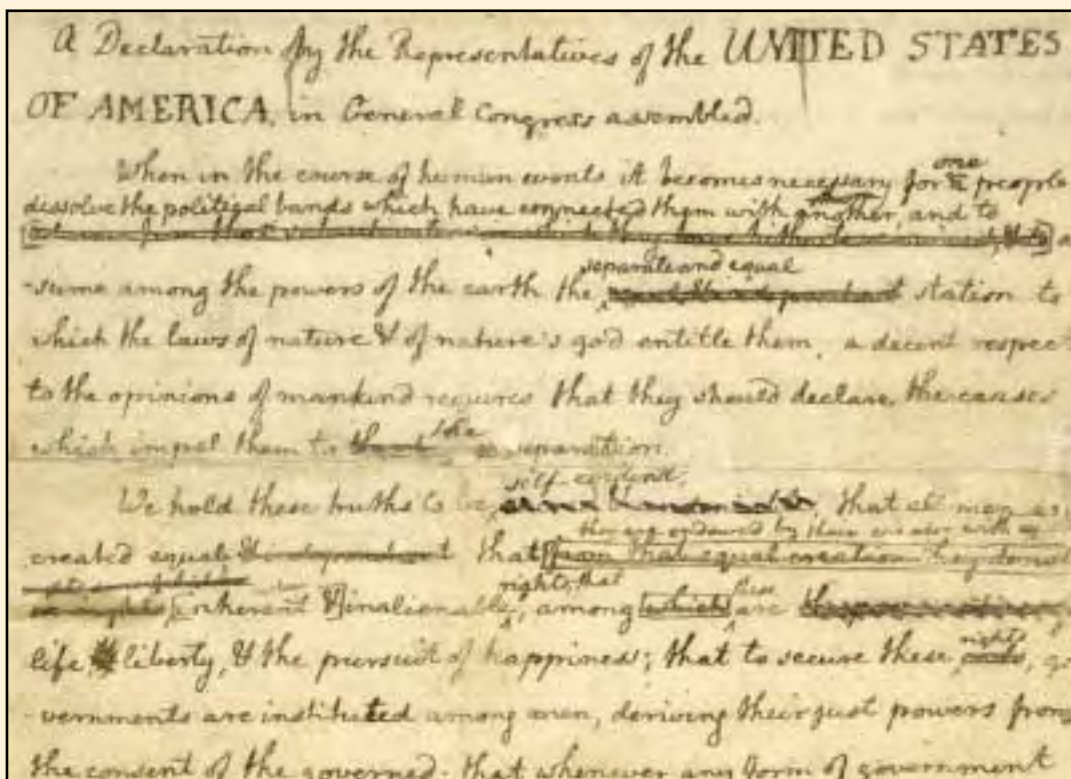 A Declaration by the Representatives of the UNITED STATES
OF AMERICA, in General Congress assembled.
one
When in the course of human events it becomes necessary for people
dissolve the political bands which have connected them with another, and to
separate and equal
-sume among the powers of the earth the station to
which the laws of nature & of nature's god entitle them, a decent respec
to the opinions of mankind requires that they should declare the causes
the
which impel them to separation.
self-evident,
We hold these truths to be that all men are
they are endowed by their creator with
created equal & independent that from that equal creation they
rights, that
inherent & inalienable, among which are
life liberty, & the pursuit of happiness; that to secure these rights, go
-vernments are instituted among men, deriving their just powers from
the consent of the governed. that whenever any form of government